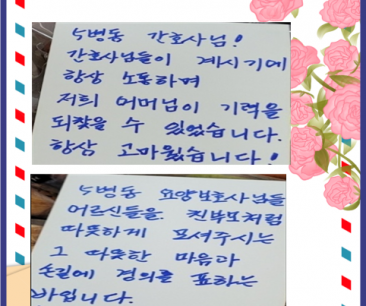 5병동 간호사님!
간호사님들이 계시기에
항상 소통하며
저희 어머님이 기력을
되찾을 수 있었습니다.
항상 고마웠습니다!
5병동 요양보호사님들
어르신들을 친부모처럼
따뜻하게 모셔주시는
그 따뜻한 마음과
손길에 경의를 표하는
바입니다.